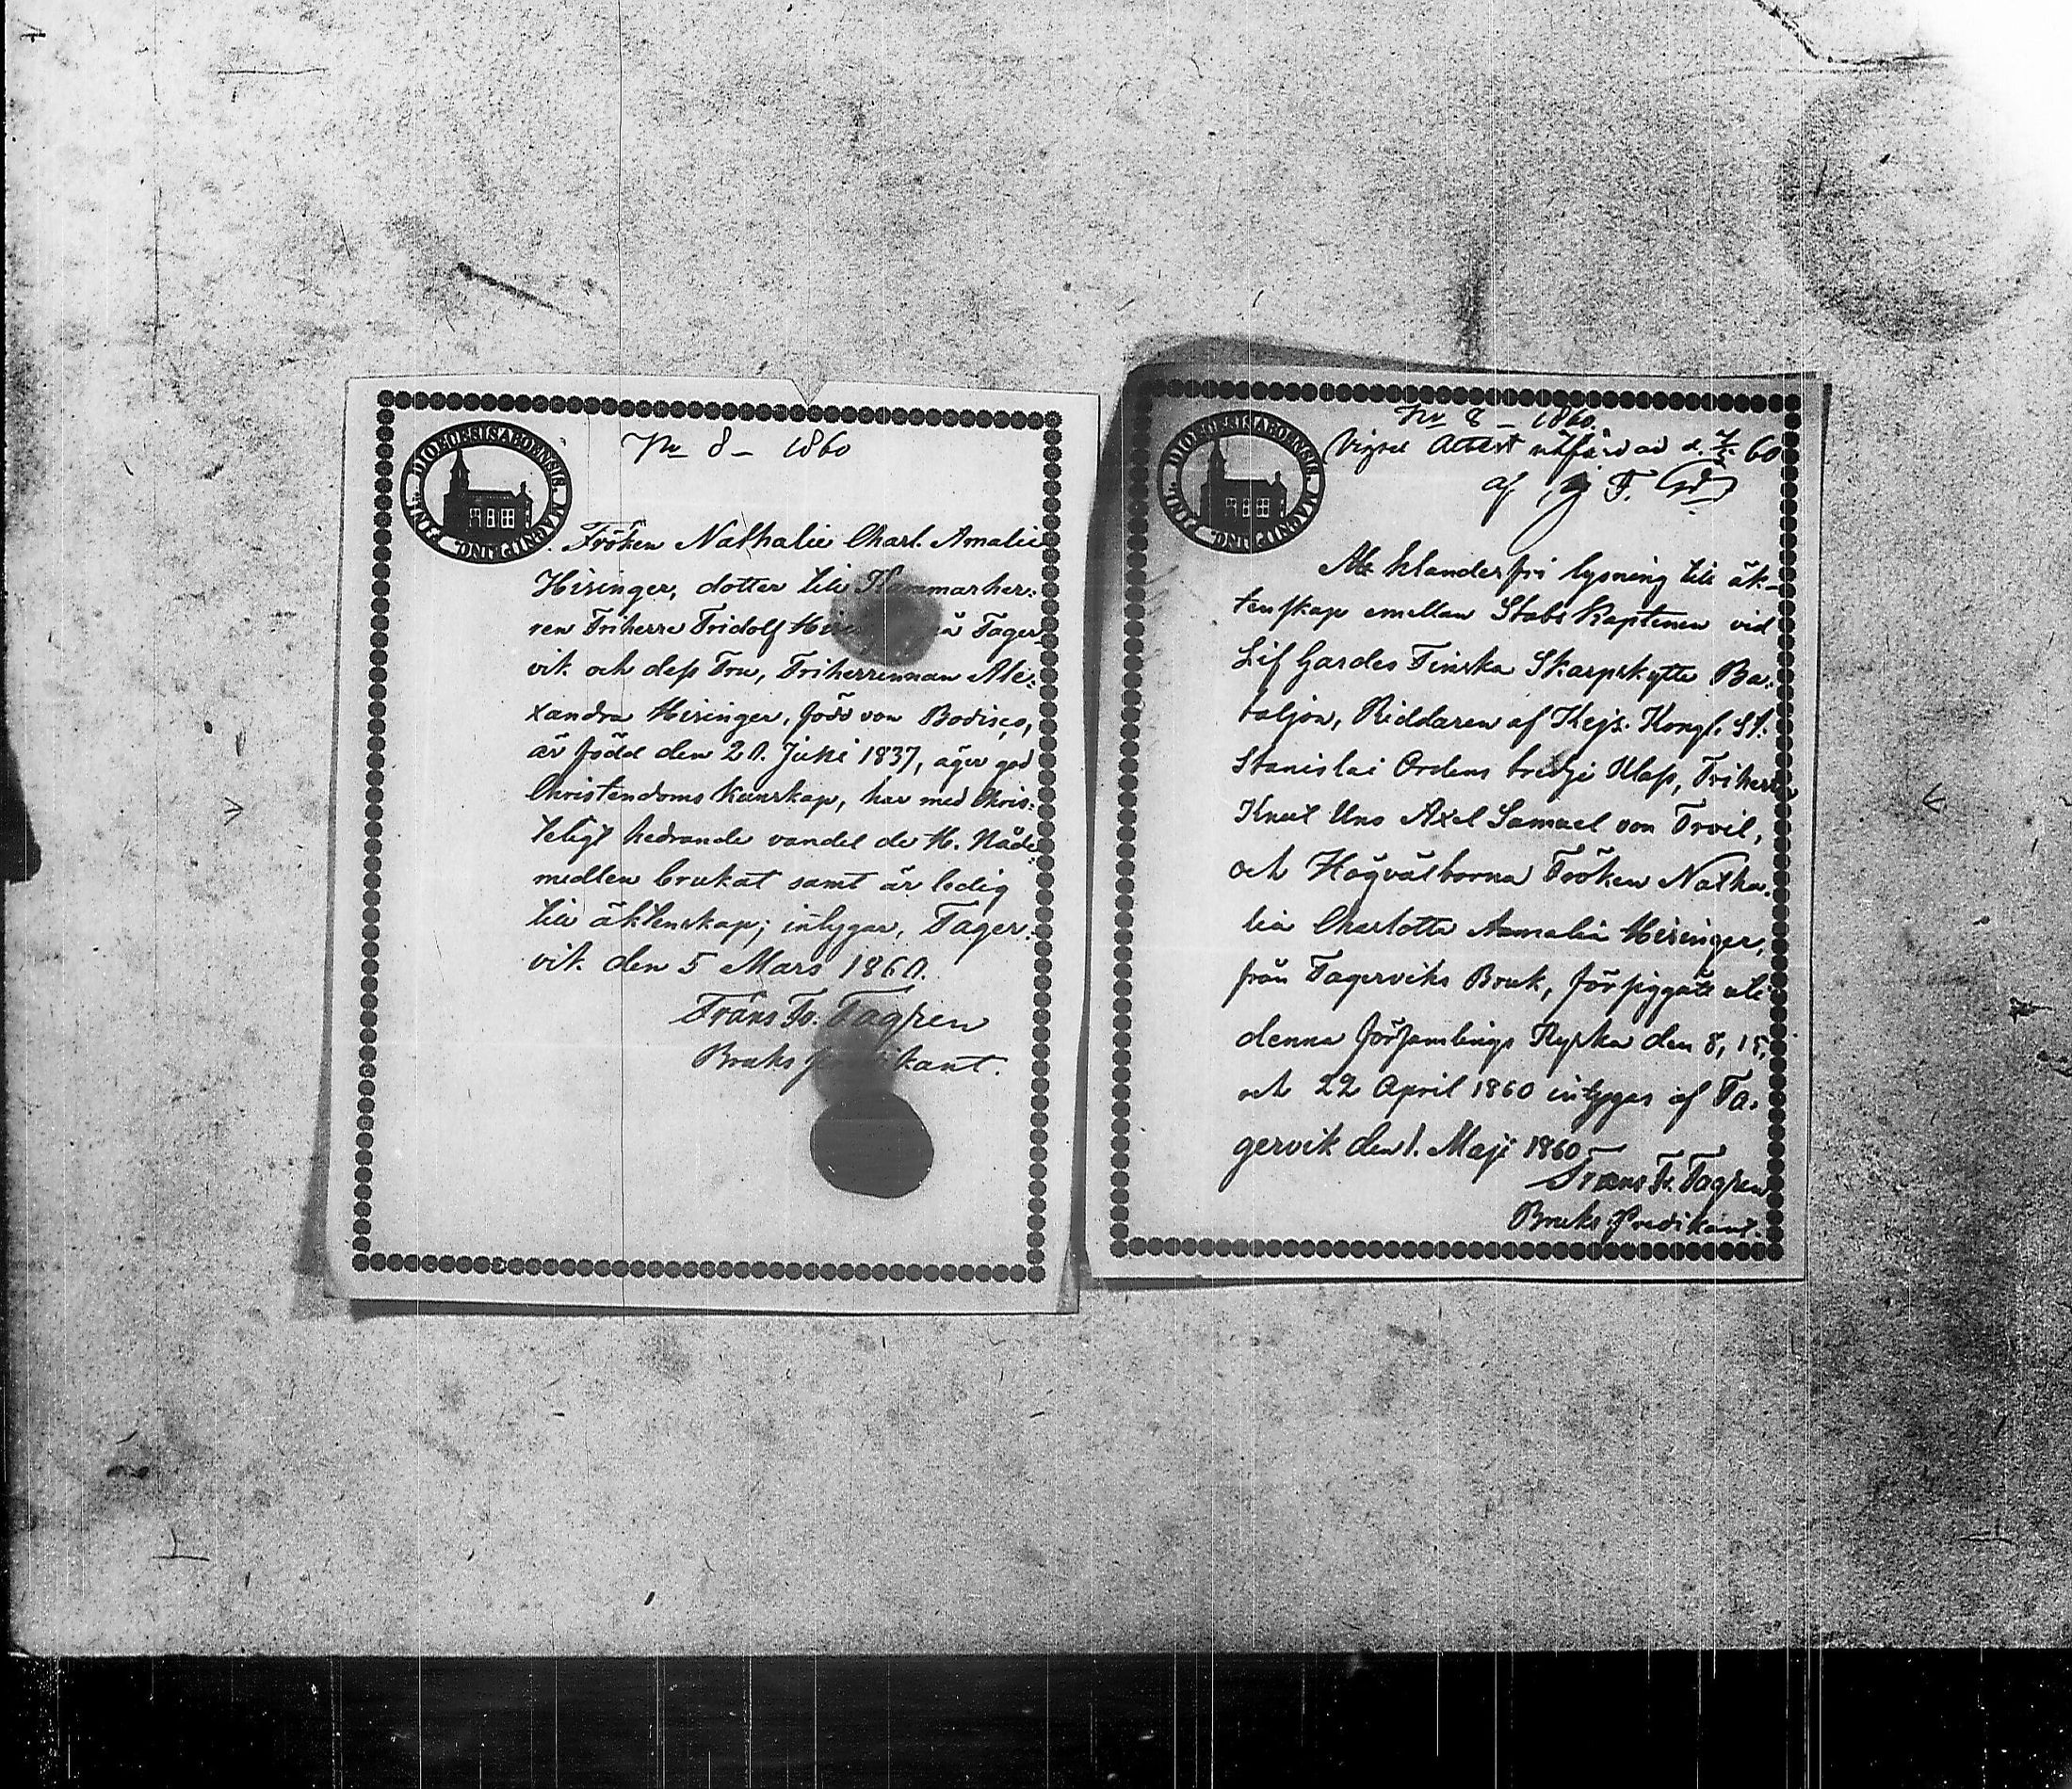 No 8 – 1860
DIOECESIS ABOENSIS. MAGNI DUC. FINL.
Fröken Nathalie Charl. Amalie
Hisinger, dotter till Kammarher-
ren Friherre Fridolf på Fager-
vik och dess Fru, Friherrinnan Ale-
xandra Hisinger, född von Bodisco,
är född den 20. Juni 1837, äger god
Christendoms kunskap, har med Chris-
teligt hedrande vandel de H. Nåde
medlen brukat samt är ledig
till äktenskap; intygar, Fager-
vik den 5 Mars 1860.
Frans Fr. Fagren
Bruks predikant.
No 8 – 1860.
Vigsel Attest utfärdad d. 60
af F.
DIOECESIS ABOENSIS. MAGNI DUC. FINL.
Att klanderfri lysning till äk-
tenskap emellan Stabs Kaptenen vid
Lif Gardes Finska Skarpskytte Ba-
taljon, Riddaren af Kejs. Kongl. St.
Stanislai Ordens tredje Klass, Friherre
Knut Uno Axel Samuel von Troil,
och Högvälborna Fröken Natha-
lia Charlotta Ammalia Hisinger,
från Fagerviks Bruk, försiggått uti
denna församlings Kyrka den 8, 15,
och 22 April 1860 intygas af Fa-
gervik den 1. Maji 1860
Frans Fr. Fagren
Bruks Predikant.